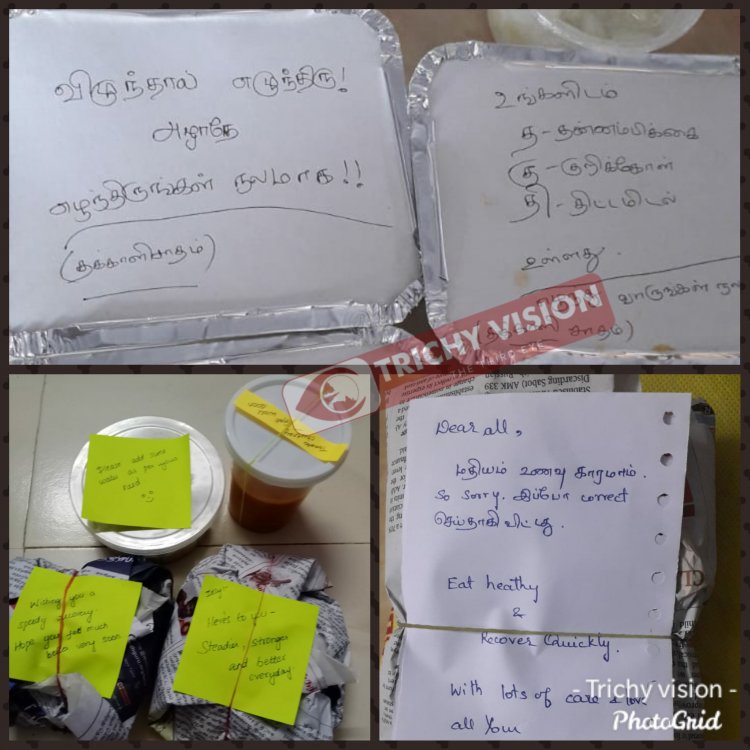 விழுந்தால் எழுந்திரு!
அழாதே
எழந்திருங்கள் நலமாக!!
(தக்காளிசாதம்)
உங்களிடம்
த - தன்னம்பிக்கை
கு - குறிக்கோள்
தி - திட்டமிடல்
உள்ளது.
வாருங்கள்
சாதம்)
TRICHY VISION
THE THIRD EYE
Please add some
water as per your
need
Wishing you a
speedy recovery.
Hope you get much
better very soon
Hey!
Here's to you -
Steadier, stronger
and better
everyday
Discarding Sabot AMK 339
Dear all,
மதியம் உணவு காரமாம்.
So Sorry. இப்போ correct
செய்தாகி விட்டது.
Eat heathy
&
Recover Quickly.
With lots of care & love
all your
- Trichy vision -
PhotoGrid